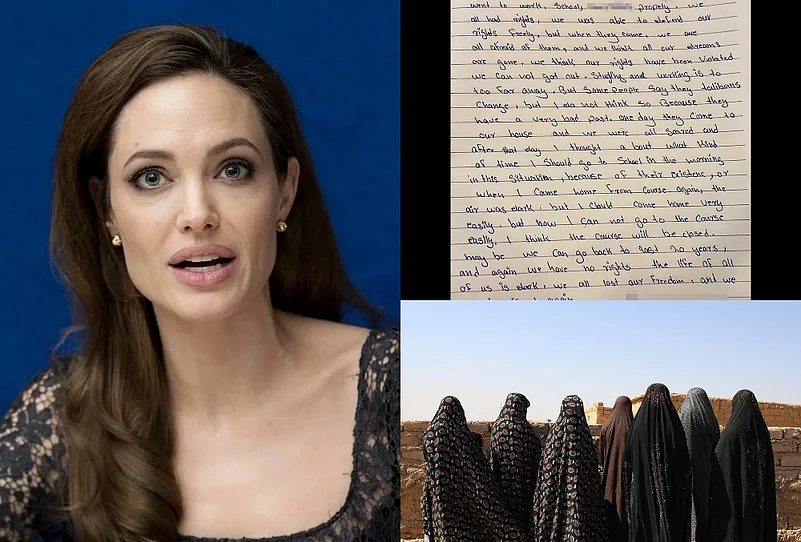 went to work, School, properly. we
all had rights, we was able to defend our
rights freely, but when they came, we are
all afraid of them, and we think all our dreams
are gone. we think our rights have been violated
we can not got out. Studing and working is to
too far away. But some people say they talibans
Change, but I do not think so Because they
have a very bad past. one day they Come to
our house and we were all scared and
after that day I thought a bout what kind
of time I should go to School in the morning
in this situation, because of their existenc, or
when I came home from course again, the
air was dark, but I Could come home very
easily, but now I can not go to the course
easily, I think the course will be closed.
may be we can go back to last 20 years,
and again we have no rights the life of all
of us is dark, we all lost our freedom, and we
again